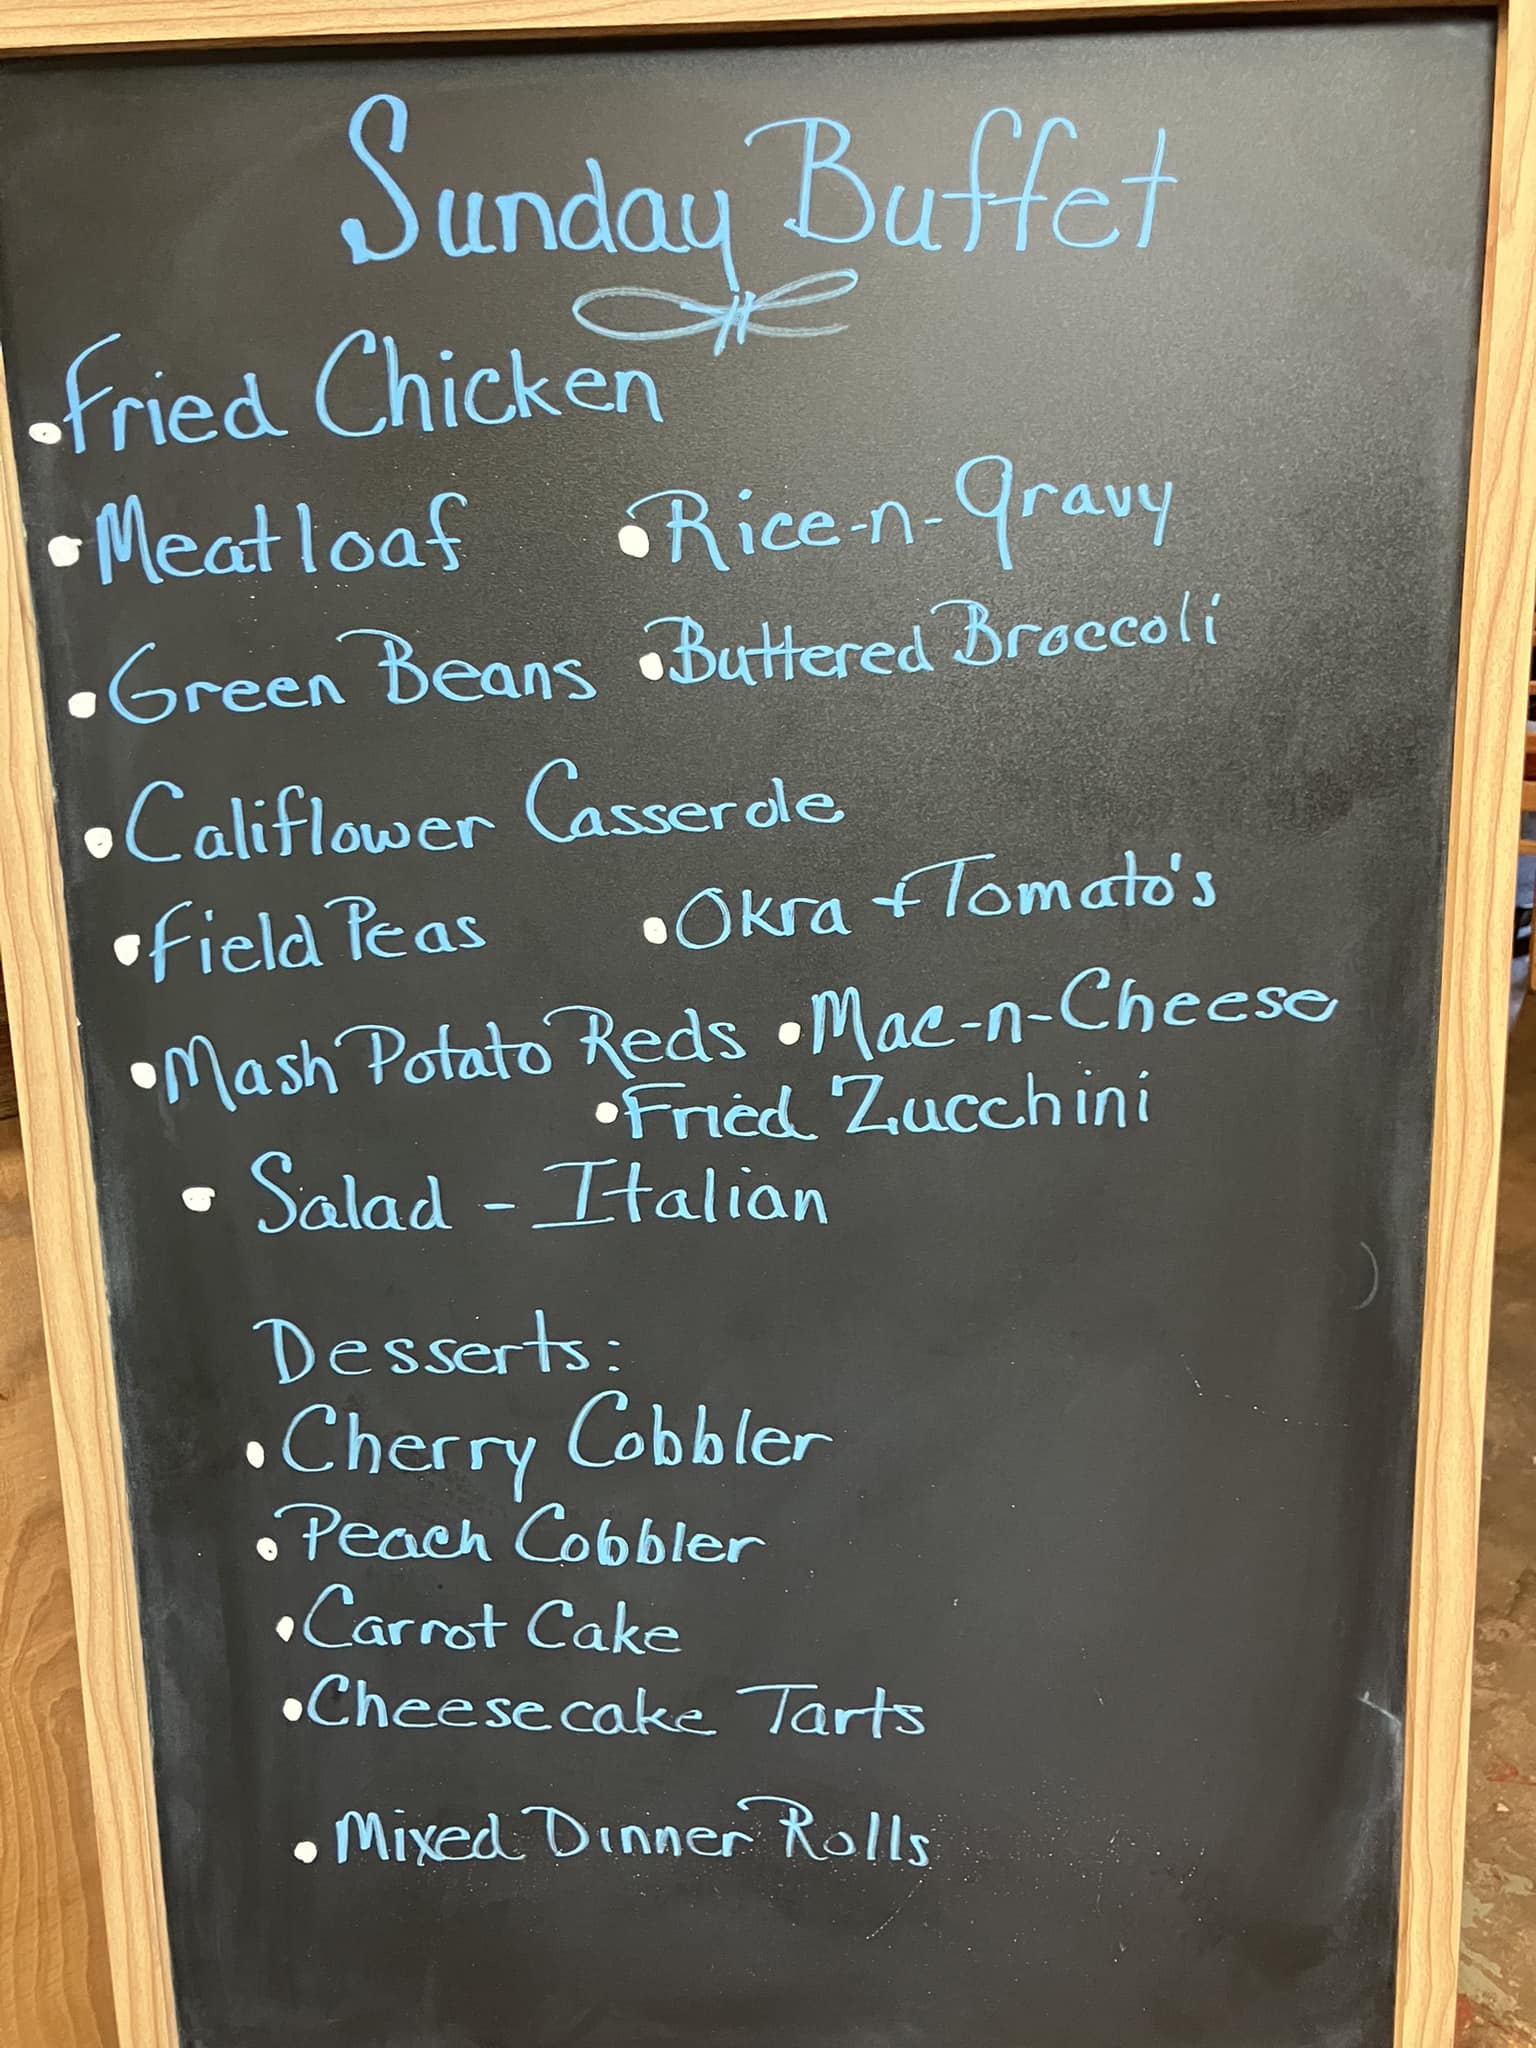 Sunday Buffet
• Fried Chicken
• Meatloaf • Rice-n-gravy
• Green Beans • Buttered Broccoli
• Califlower Casserole
• Field Peas • Okra + Tomato's
• Mash Potato Reds • Mac-n-Cheese
• Fried Zucchini
• Salad - Italian
Desserts:
• Cherry Cobbler
• Peach Cobbler
• Carrot Cake
• Cheesecake Tarts
• Mixed Dinner Rolls